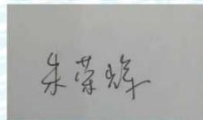 朱荣辉